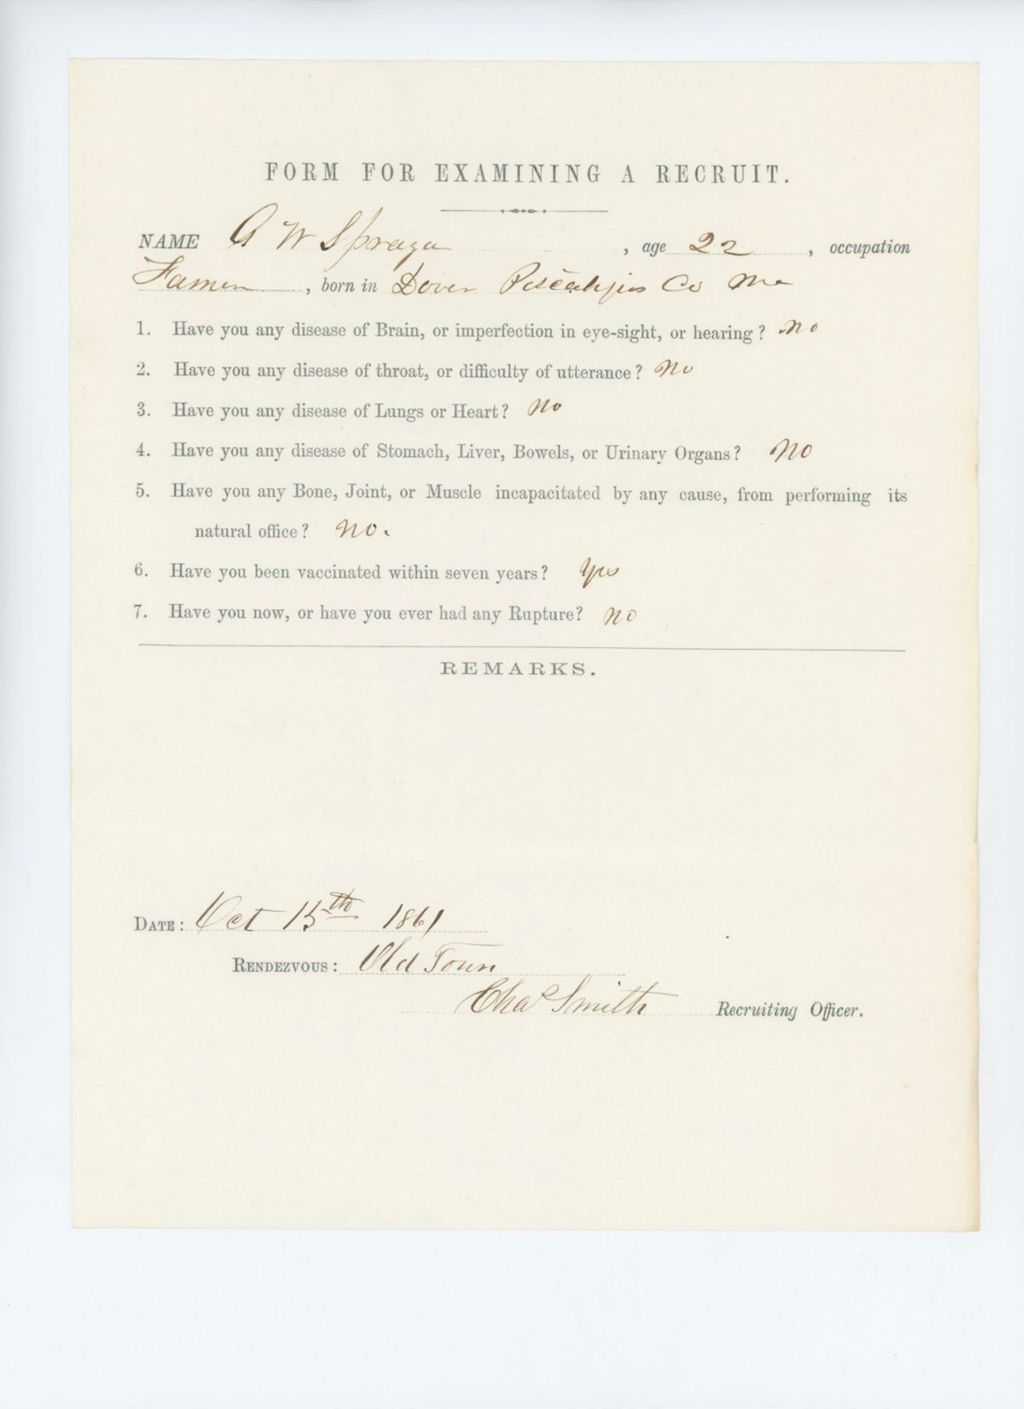 FORM FOR EXAMINING A RECRUIT.
NAME A W Sprague, age 22, occupation
Farmer, born in Dover Piscataquis Co Me
1. Have you any disease of Brain, or imperfection in eye-sight, or hearing? No
2. Have you any disease of throat, or difficulty of utterance? No
3. Have you any disease of Lungs or Heart? No
4. Have you any disease of Stomach, Liver, Bowels, or Urinary Organs? No
5. Have you any Bone, Joint, or Muscle incapacitated by any cause, from performing its
natural office? No.
6. Have you been vaccinated within seven years? Yes
7. Have you now, or have you ever had any Rupture? No
REMARKS.
DATE: Oct 15th 1861
RENDEZVOUS: Old Town
Chas Smith Recruiting Officer.